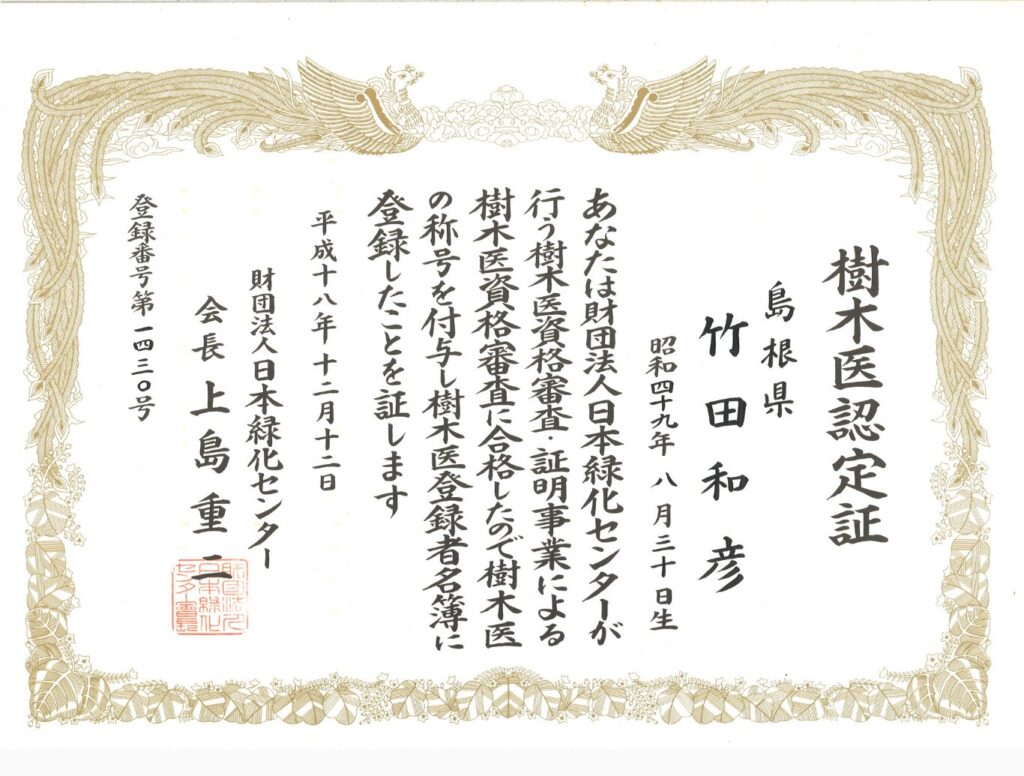 樹木医認定証
島根県
竹田和彦
昭和四十九年 八月三十日生
あなたは財団法人日本緑化センターが
行う樹木医資格審査・証明事業による
樹木医資格審査に合格したので樹木医
の称号を付与し樹木医登録者名簿に
登録したことを証します
平成十八年十二月十二日
財団法人日本緑化センター
会長 上島重二
財団法人
日本緑化
センター会長
登録番号第一四三〇号